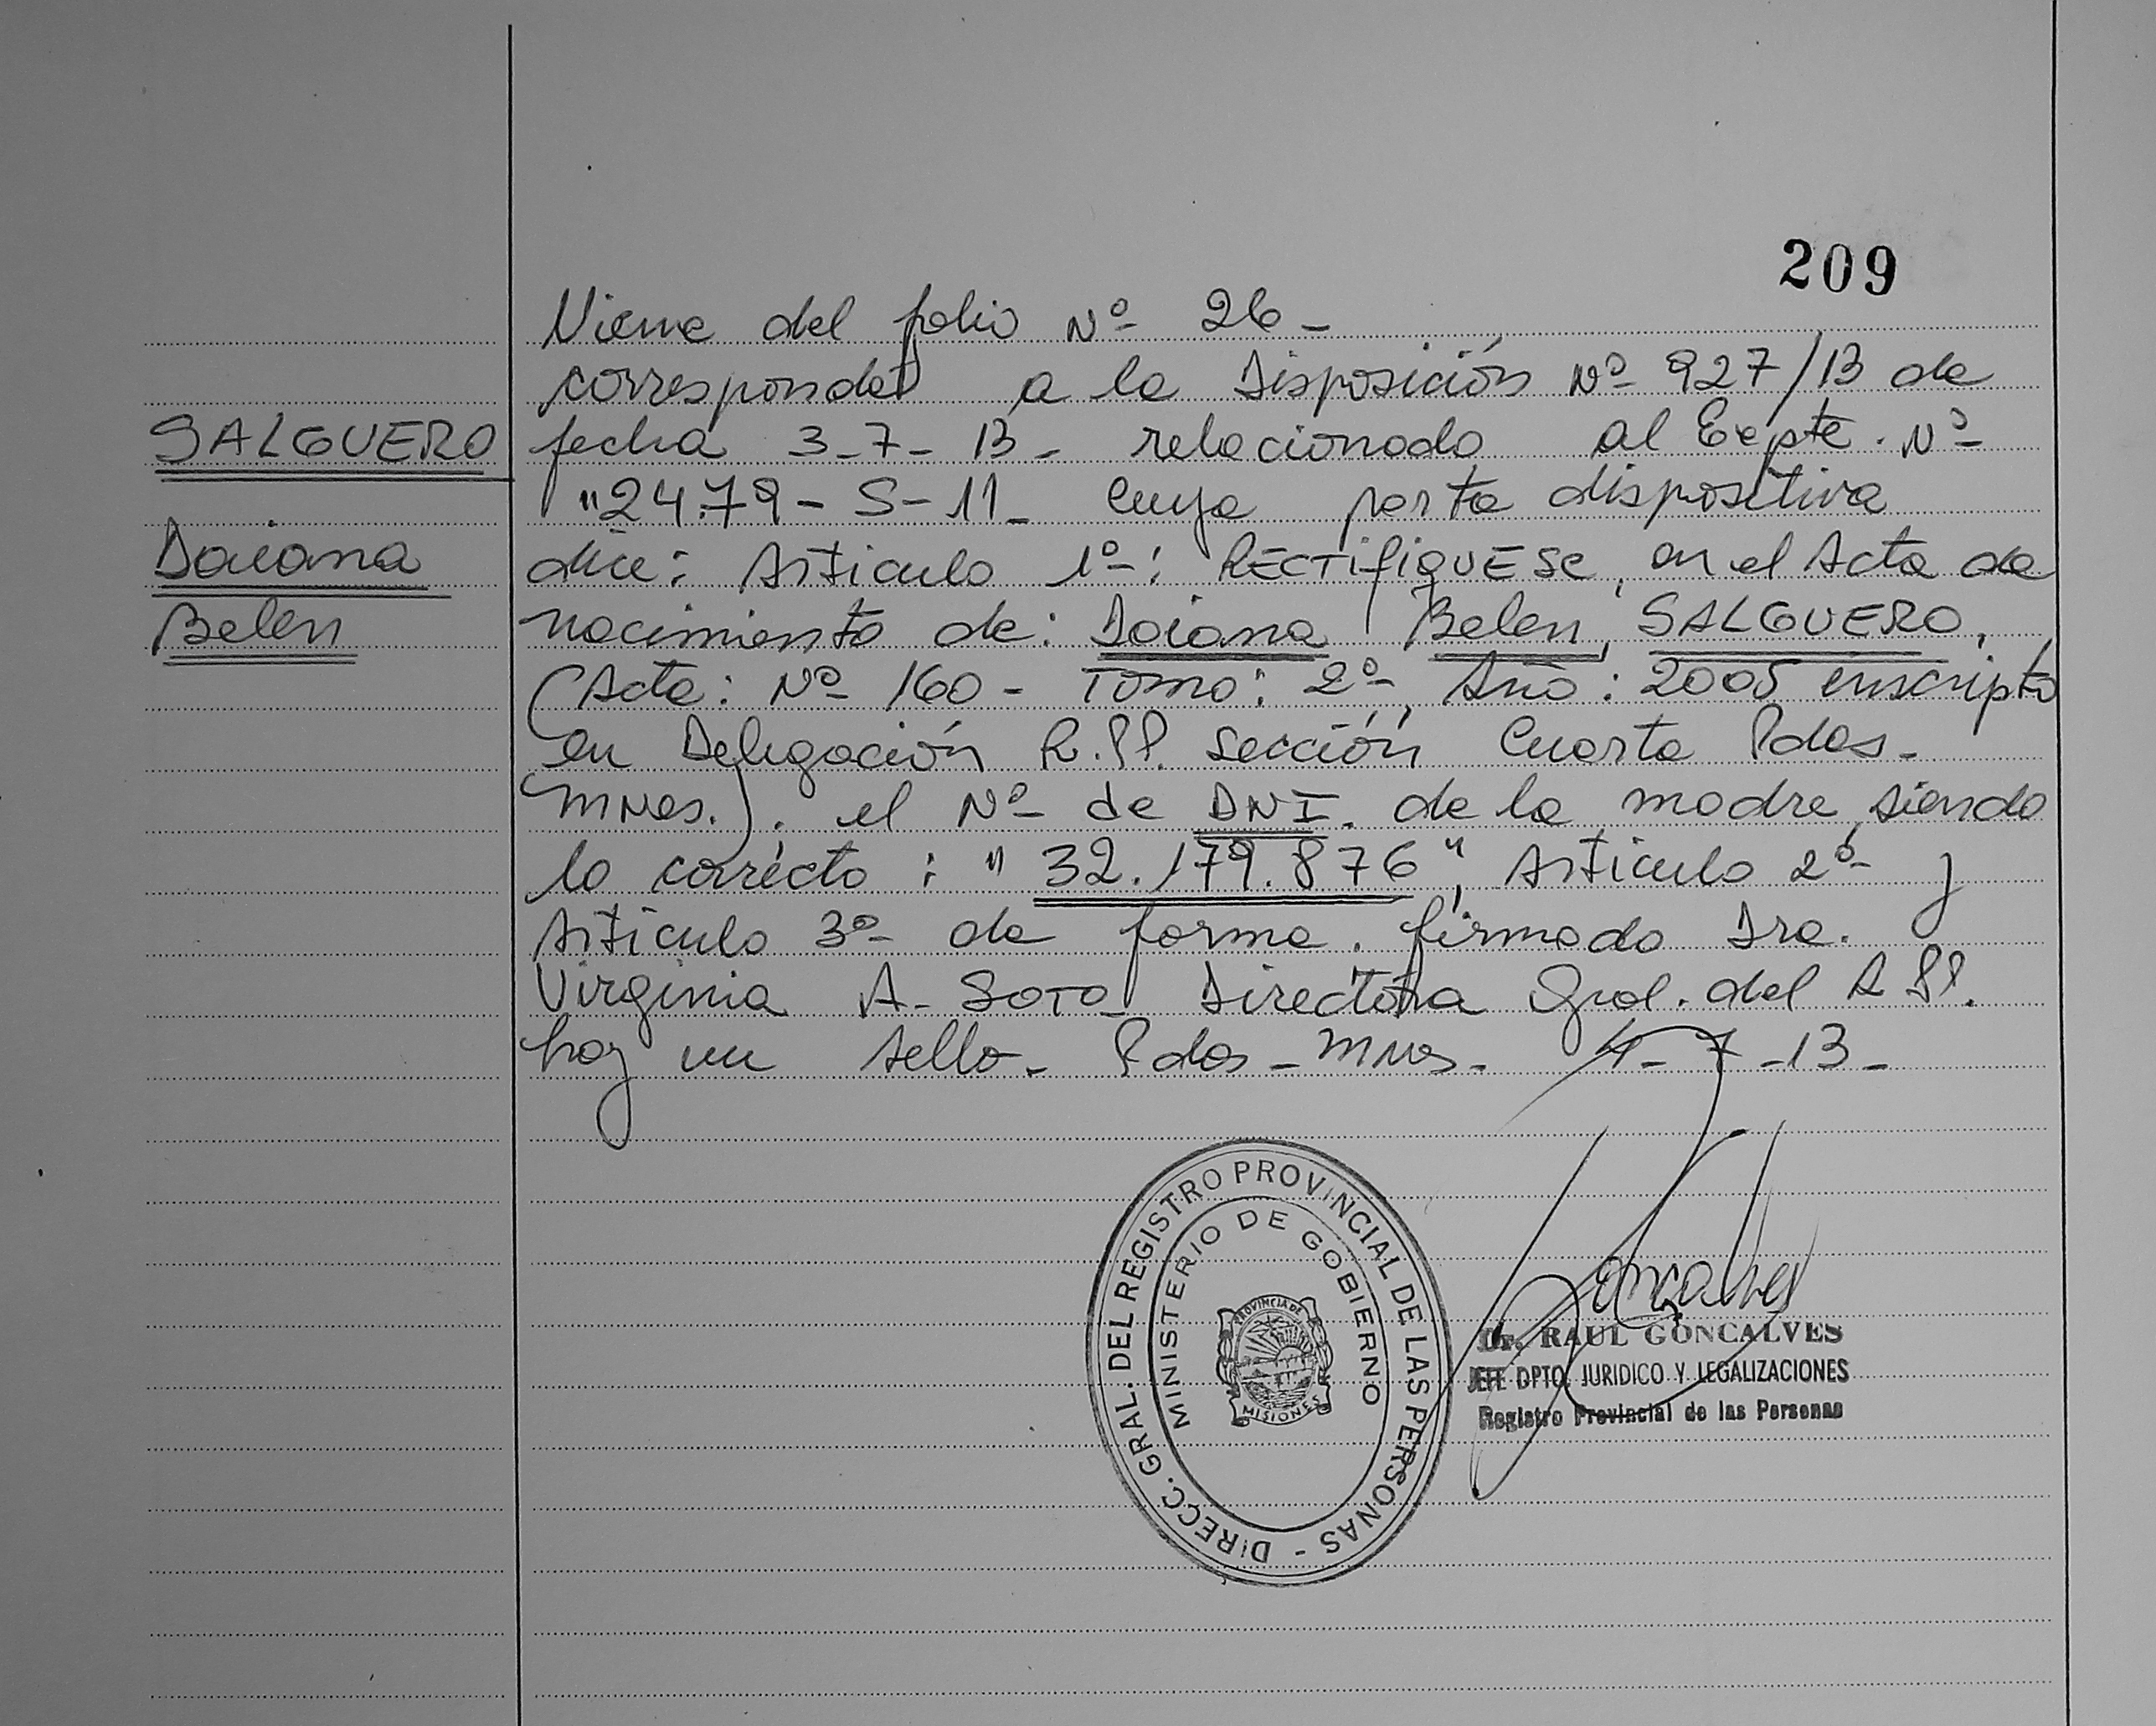 209
Viene del folio Nº 26 -
corresponde a la Disposición Nº 927/13 de
SALGUERO fecha 3-7-13- relacionado al Expte. Nº
"2479-S-11- Cuya parte dispositiva
Daiana dice: Artículo 1º: RECTIFIQUESE, en el Acta de
Belen nacimiento de: Daiana Belen, SALGUERO,
(Acta: Nº 160 - Tomo: 2º, Año: 2005 inscripta
en Delegación R.PP. Sección Cuarta Pdas.
Mnes.). el Nº de DNI. de la madre, siendo
lo correcto: "32.179.876", Artículo 2º y
Artículo 3º de forma. firmado Dra.
Virginia A. SOTO Directora Gral. del R.PP.
hay un sello. Pdas - Mnes. 4-7-13-
DIRECC. GRAL. DEL REGISTRO PROVINCIAL DE LAS PERSONAS -
MINISTERIO DE GOBIERNO
PROVINCIA DE
MISIONES
Goncalves
Dr. RAUL GONCALVES
JEFE DPTO. JURIDICO Y LEGALIZACIONES
Registro Provincial de las Personas